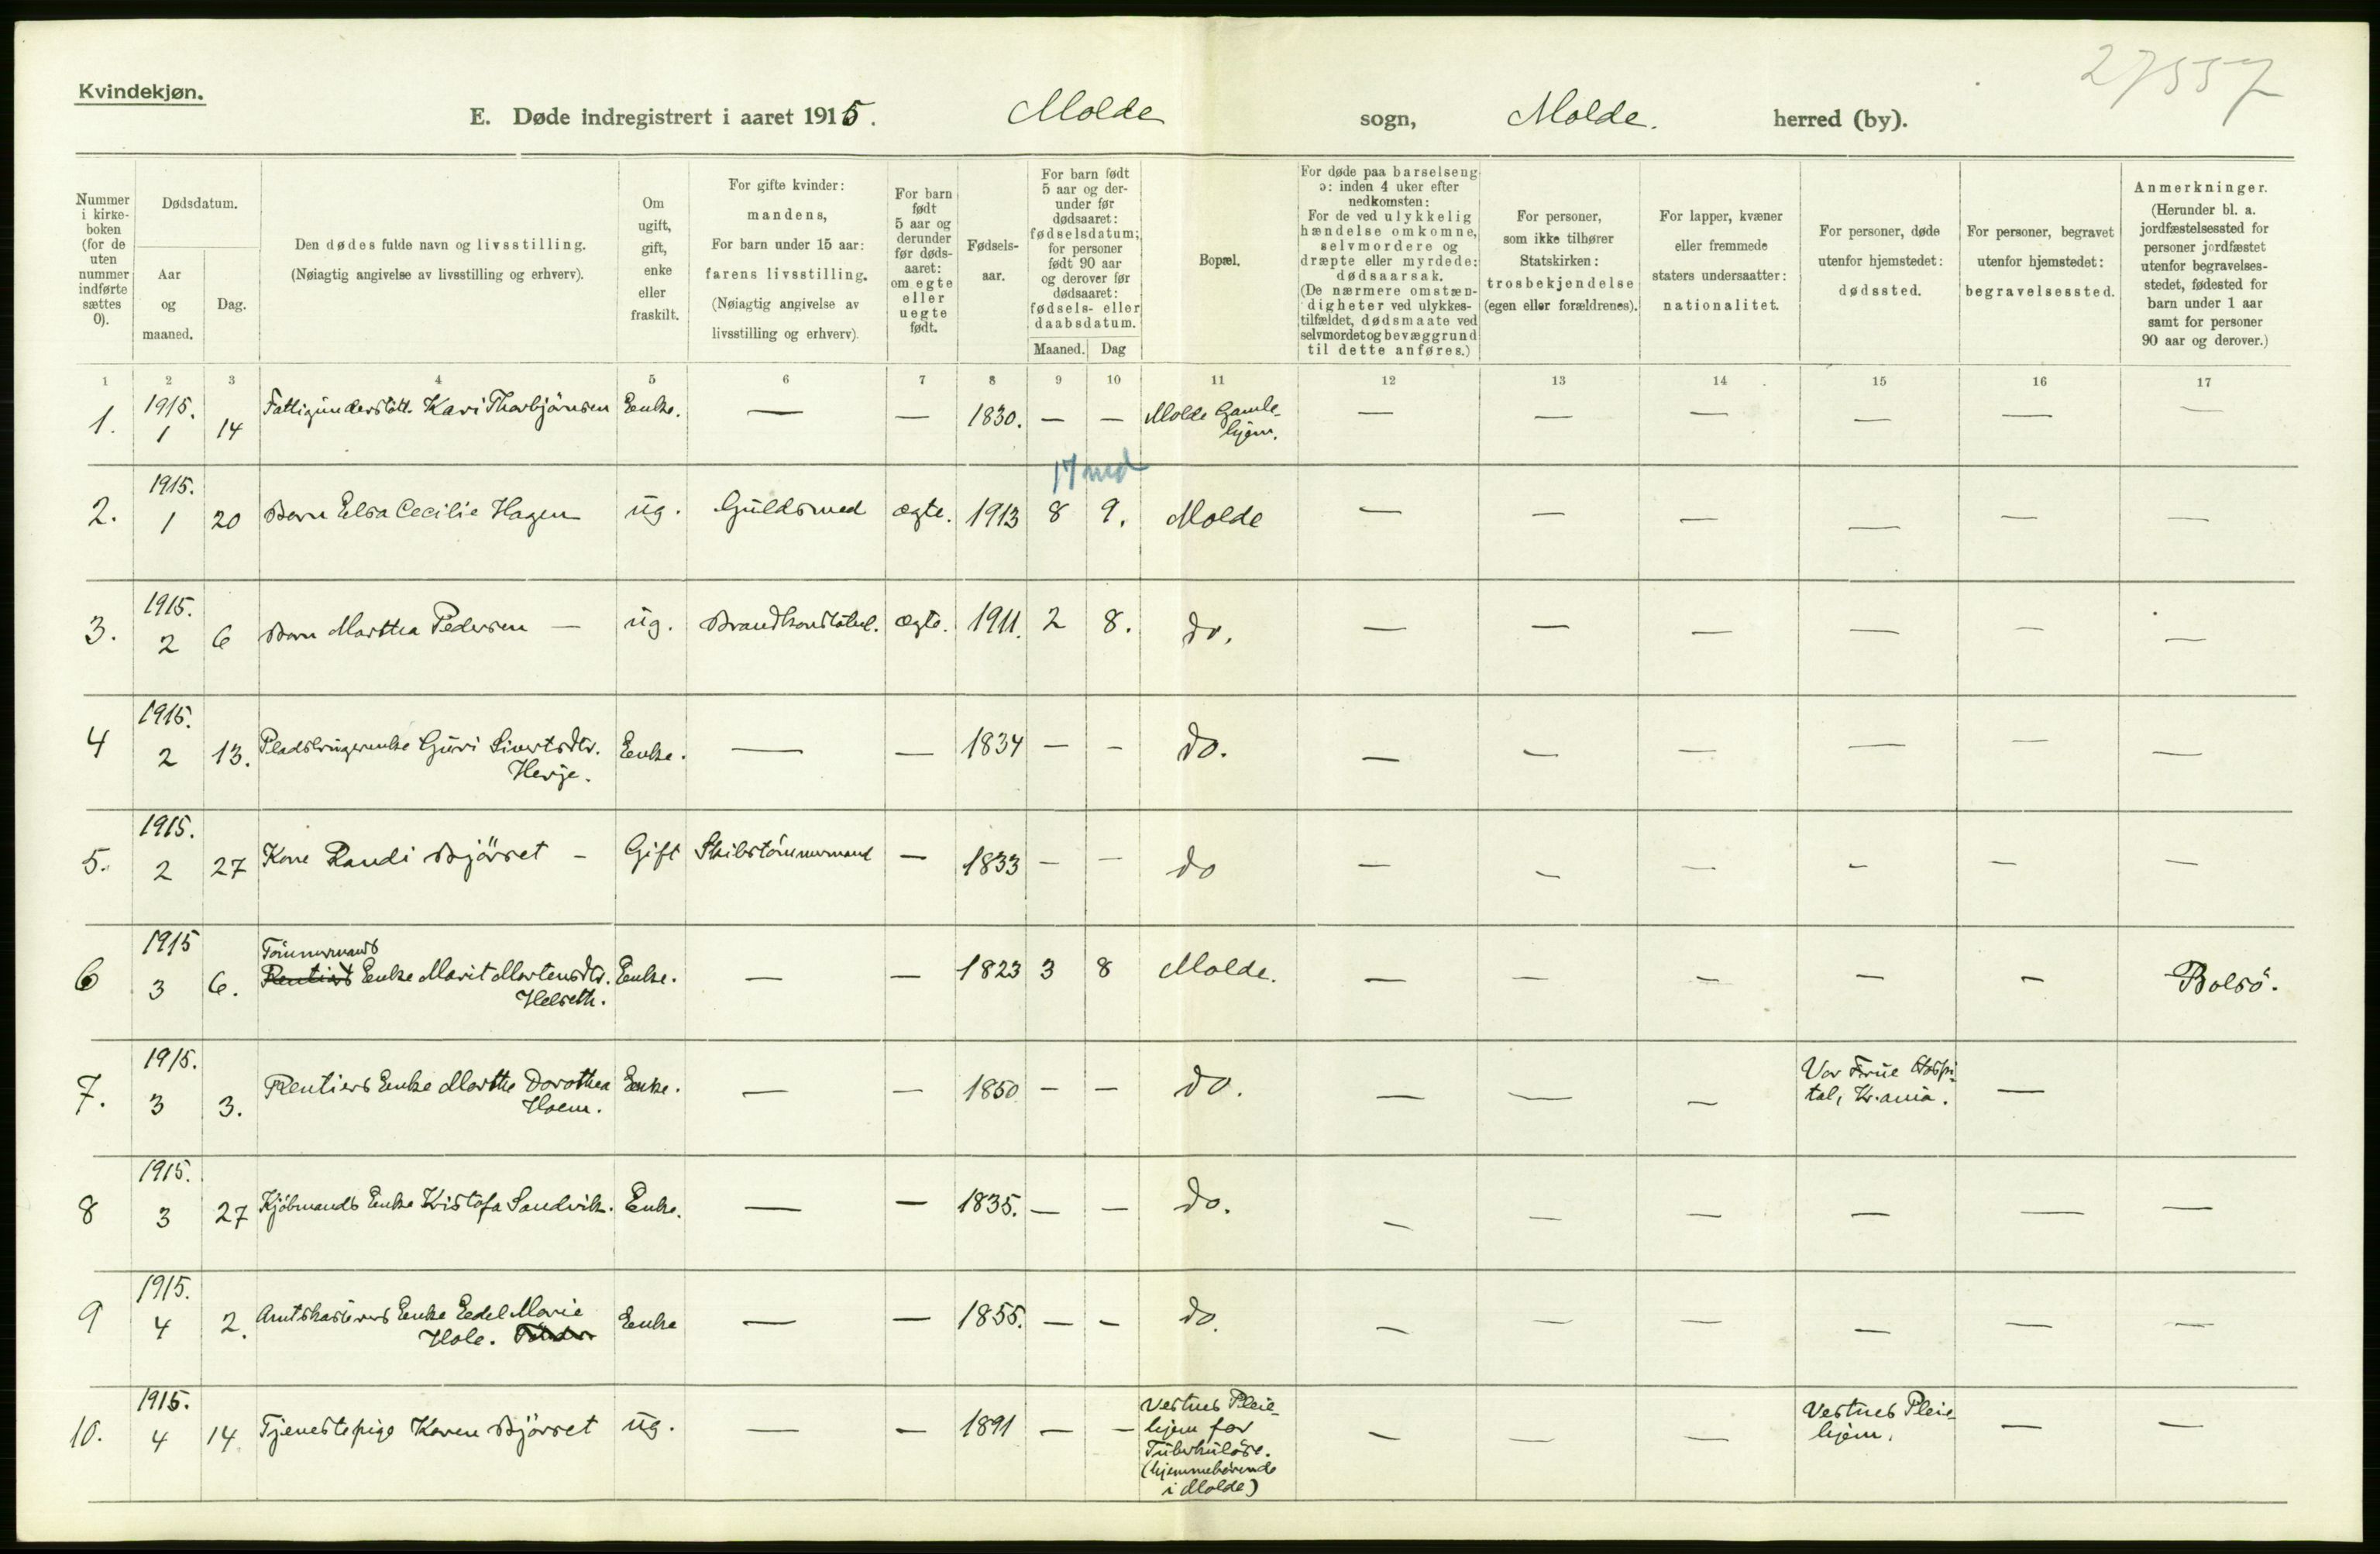 27557
Kvindekjøn.
E. Døde indregistrert i aaret 1915. Molde sogn, Molde. herred (by).
Nummer
i kirke-
boken
(for de
uten
nummer
indførte
sættes
0).
Dødsdatum.
Aar
og
maaned.
Dag.
Den dødes fulde navn og livsstilling.
(Nøiagtig angivelse av livsstilling og erhverv).
Om
ugift,
gift,
enke
eller
fraskilt.
For gifte kvinder:
mandens,
For barn under 15 aar:
farens livsstilling.
(Nøiagtig angivelse av
livsstilling og erhverv).
For barn
født
5 aar og
derunder
før døds-
aaret:
om egte
eller
uegte
født.
Fødsels-
aar.
For barn født
5 aar og der-
under før
dødsaaret:
fødselsdatum;
for personer
født 90 aar
og derover før
dødsaaret:
fødsels- eller
daabsdatum.
Maaned. Dag
Bopæl.
For døde paa barselseng
ɔ: inden 4 uker efter
nedkomsten:
For de ved ulykkelig
hændelse omkomne,
selvmordere og
dræpte eller myrdede:
dødsaarsak.
(De nærmere omstæn-
digheter ved ulykkes-
tilfældet, dødsmaate ved
selvmordet og bevæggrund
til dette anføres.)
For personer,
som ikke tilhører
Statskirken:
trosbekjendelse
(egen eller forældrenes).
For lapper, kvæner
eller fremmede
staters undersaatter:
nationalitet.
For personer, døde
utenfor hjemstedet:
dødssted.
For personer, begravet
utenfor hjemstedet:
begravelsessted.
Anmerkninger.
(Herunder bl. a.
jordfæstelsessted for
personer jordfæstet
utenfor begravelses-
stedet, fødested for
barn under 1 aar
samt for personer
90 aar og derover.)
1 2 3 4 5 6 7 8 9 10 11 12 13 14 15 16 17
1. 1915. 1 14 Fattigunderstött. Kari Thorbjörnsen Enke. — — 1830. — — Molde Gamle-
hjem. — — — — — —
17 md
2. 1915. 1 20 Barn Elsa Cecilie Hagen ug. Guldsmed ægte. 1913 8 9. Molde — — — — — —
3. 1915. 2 6 Barn Martha Pedersen — ug. Brandkonstabel. ægte. 1911. 2 8. do. — — — — — —
4 1915. 2 13. Pladsbrugerenke Guri Sivertsdtr.
Herje. Enke. — — 1834 — — do. — — — — — —
5. 1915. 2 27 Kone Randi Bjørset — Gift Skibstömmermand — 1833 — — do — — — — — —
6 1915 3 6. Tömmermands
Rentiers Enke Marit Martensdtr.
Helseth. Enke. — — 1823 3 8 Molde. — — — — — Bolsö.
7. 1915. 3 3. Rentiers Enke Marthe Dorothea
Hoem. Enke. — — 1850 — — do. — — — Vor Frue Hospi-
tal, Kr.ania. —
8 1915. 3 27 Kjöbmands Enke Kristofa Sandvik. Enke. — — 1835. — — do. — — — — — —
9 1915. 4 2. Amtskaserers Enke Eedel Marie
Hole. Enke — — 1855. — — do. — — — — — —
10. 1915. 4 14 Tjenestepige Karen Bjørset ug. — — 1891 — — Vestnes Pleie-
hjem for
Tuberkulöse.
(hjemmehörende
i Molde) — — — Vestnes Pleie-
hjem. — —